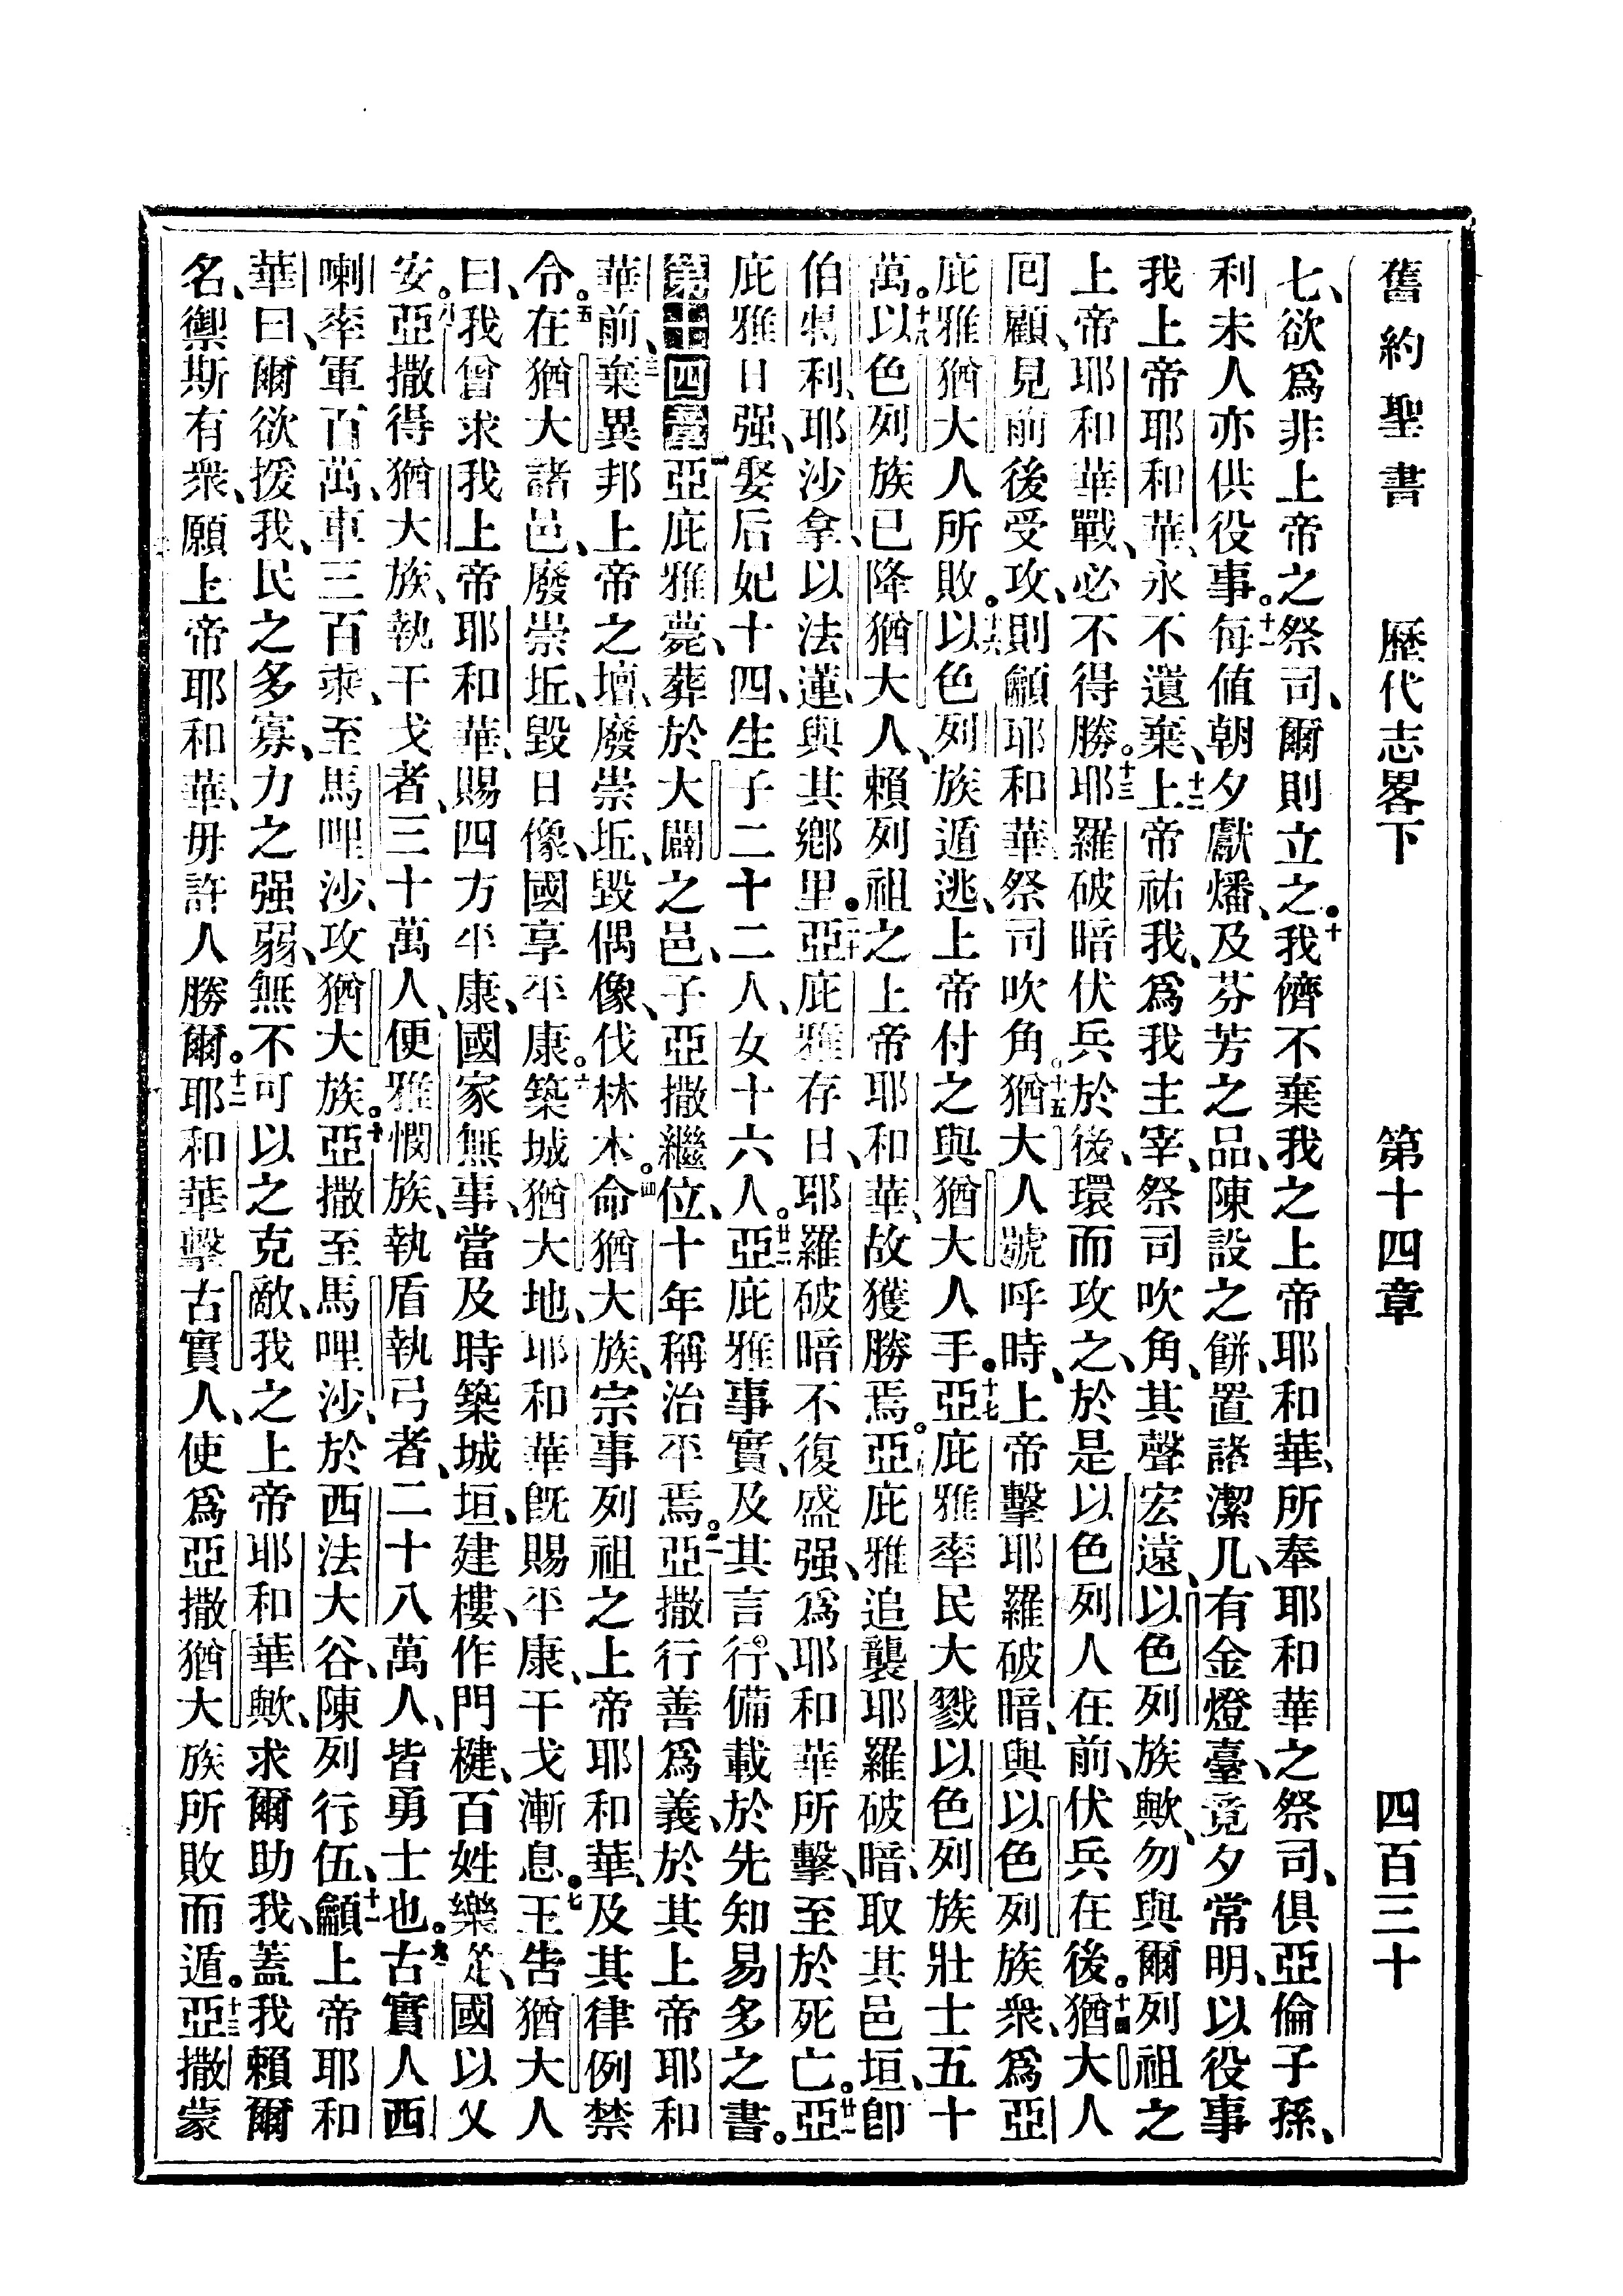 舊約聖書 歷代志畧下 第十四章 四百三十
七、欲爲非上帝之祭司、爾則立之。十我儕不棄我之上帝耶和華、所奉耶和華之祭司、俱亞倫子孫、
利未人亦供役事。十一每値朝夕獻燔、及芬芳之品、陳設之餅、置諸潔几、有金燈臺、竟夕常明、以役事
我上帝耶和華、永不遺棄、十二上帝祐我、爲我主宰、祭司吹角、其聲宏遠、以色列族歟、勿與爾列祖之
上帝耶和華戰、必不得勝。十三耶羅破暗伏兵於後、環而攻之、於是以色列人在前、伏兵在後。十四猶大人
囘顧、見前後受攻、則籲耶和華、祭司吹角。十五猶大人號呼時、上帝擊耶羅破暗、與以色列族衆、爲亞
庇雅猶大人所敗。十六以色列族遁逃、上帝付之與猶大人手。十七亞庇雅率民大戮以色列族壯士五十
萬。十八以色列族已降猶大人、賴列祖之上帝耶和華、故獲勝焉。十九亞庇雅追襲耶羅破暗、取其邑垣、卽
伯特利、耶沙拿、以法蓮、與其鄉里。二十亞庇雅存日、耶羅破暗不復盛强、爲耶和華所擊、至於死亡。廿一亞
庇雅日强、娶后妃十四、生子二十二人、女十六人。廿二亞庇雅事實、及其言行、備載於先知易多之書。
第十四章 一亞庇雅薨、葬於大闢之邑、子亞撒繼位、十年稱治平焉。二亞撒行善爲義、於其上帝耶和
華前、三棄異邦上帝之壇、廢崇坵、毀偶像、伐林木。四命猶大族、宗事列祖之上帝耶和華、及其律例禁
令。五在猶大諸邑、廢崇坵、毀日像、國享平康。六築城猶大地、耶和華旣賜平康、干戈漸息。七王告猶大人
曰、我曾求我上帝耶和華、賜四方平康、國家無事、當及時築城垣、建樓、作門楗、百姓樂從、國以乂
安。八亞撒得猶大族、執干戈者、三十萬人、便雅憫族、執盾執弓者、二十八萬人、皆勇士也。九古實人西
喇率軍百萬、車三百乘、至馬哩沙、攻猶大族。十亞撒至馬哩沙、於西法大谷、陳列行伍、十一籲上帝耶和
華曰、爾欲援我、民之多寡、力之强弱、無不可以之克敵、我之上帝耶和華歟、求爾助我、蓋我賴爾
名、禦斯有衆、願上帝耶和華、毋許人勝爾。十二耶和華擊古實人、使爲亞撒猶大族所敗而遁。十三亞撒蒙